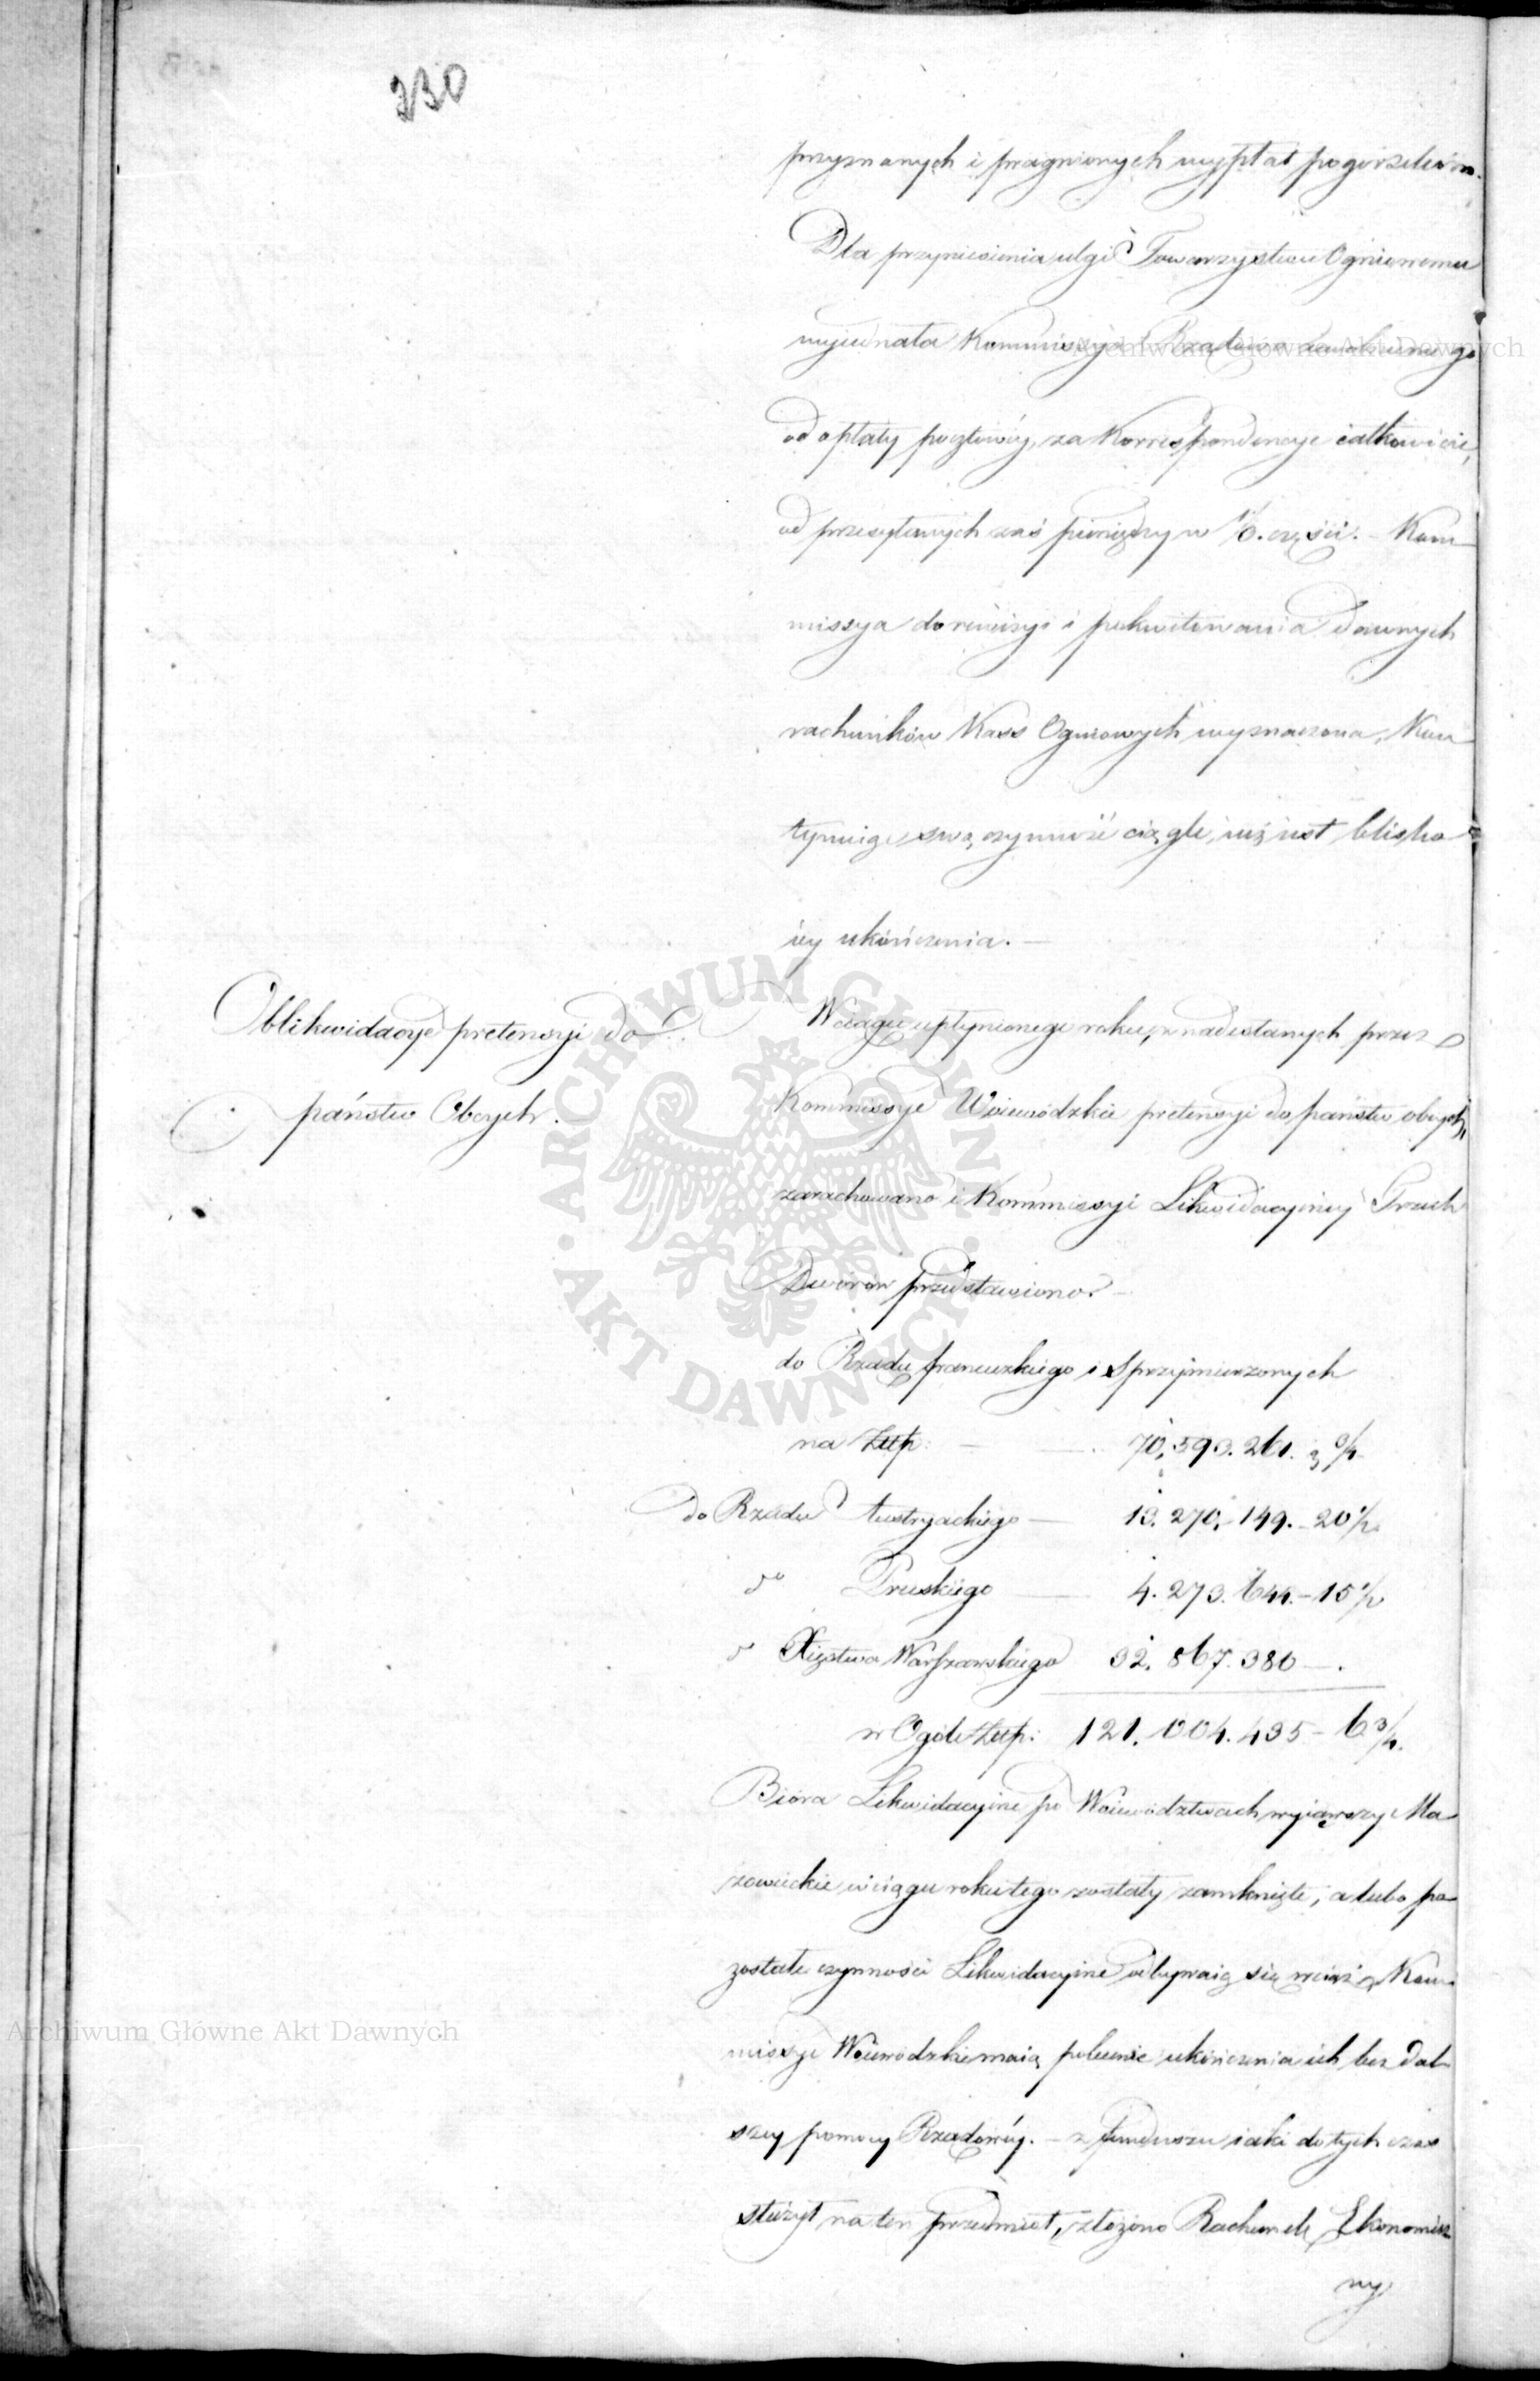 230
przyznanych i pragnionych wypłat pogorzelcom.
Dla przyniesienia ulgi Towarzystwu Ogniowemu
wyjednała Kommissya Rządowa uwolnienie go
od opłaty pocztowéy, za Korrespondencye całkowicie,
od przesyłanych zaś pieniędzy w części. – Kom-
missya do rewizyi i pokwitowania dawnych
rachunków Kass Ogniowych wyznaczona, Kon-
tynuiąc swą czynność ciągle, iuż iest bliską
iéy ukończenia. –
Oblikwidacye pretensyi do
państw Obcych.
W ciągu upłynionego roku, z nadesłanych przez
Kommissye Woiewódzkie pretensyi do państw obcych,
zarachowano i Kommissyi Likwidacyinéy Trzech
Dworów przedstawiono. –
do Rządu francuzkiego i Sprzymierzonych
na Złtp: – 70,593.261. 3/4
do Rządu Austryackiego – 13.270,149. – 20 1/2
do Pruskiego – 4.273.644. – 15 1/2
do Xięstwa Warszawskiego 32.867.380 – .
w Ogóle Złtp: 121.004.435 – 6 3/4.
Bióra Likwidacyine po Woiewództwach wyiąwszy Ma-
zowieckie w ciągu roku tego zostały zamknięte, a lubo po-
zostałe czynności Likwidacyine odbywaią się wciąż, Kom-
missye Woiewódzkie maią polecenie ukończenia ich bez dal-
széy pomocy Rządowéy. – z funduszu iaki dotych czas
służył na ten przedmiot, złożono Rachunek Ekonomicz-
ny
ARCHIWUM GŁÓWNE AKT DAWNYCH
Archiwum Główne Akt Dawnych
Archiwum Główne Akt Dawnych